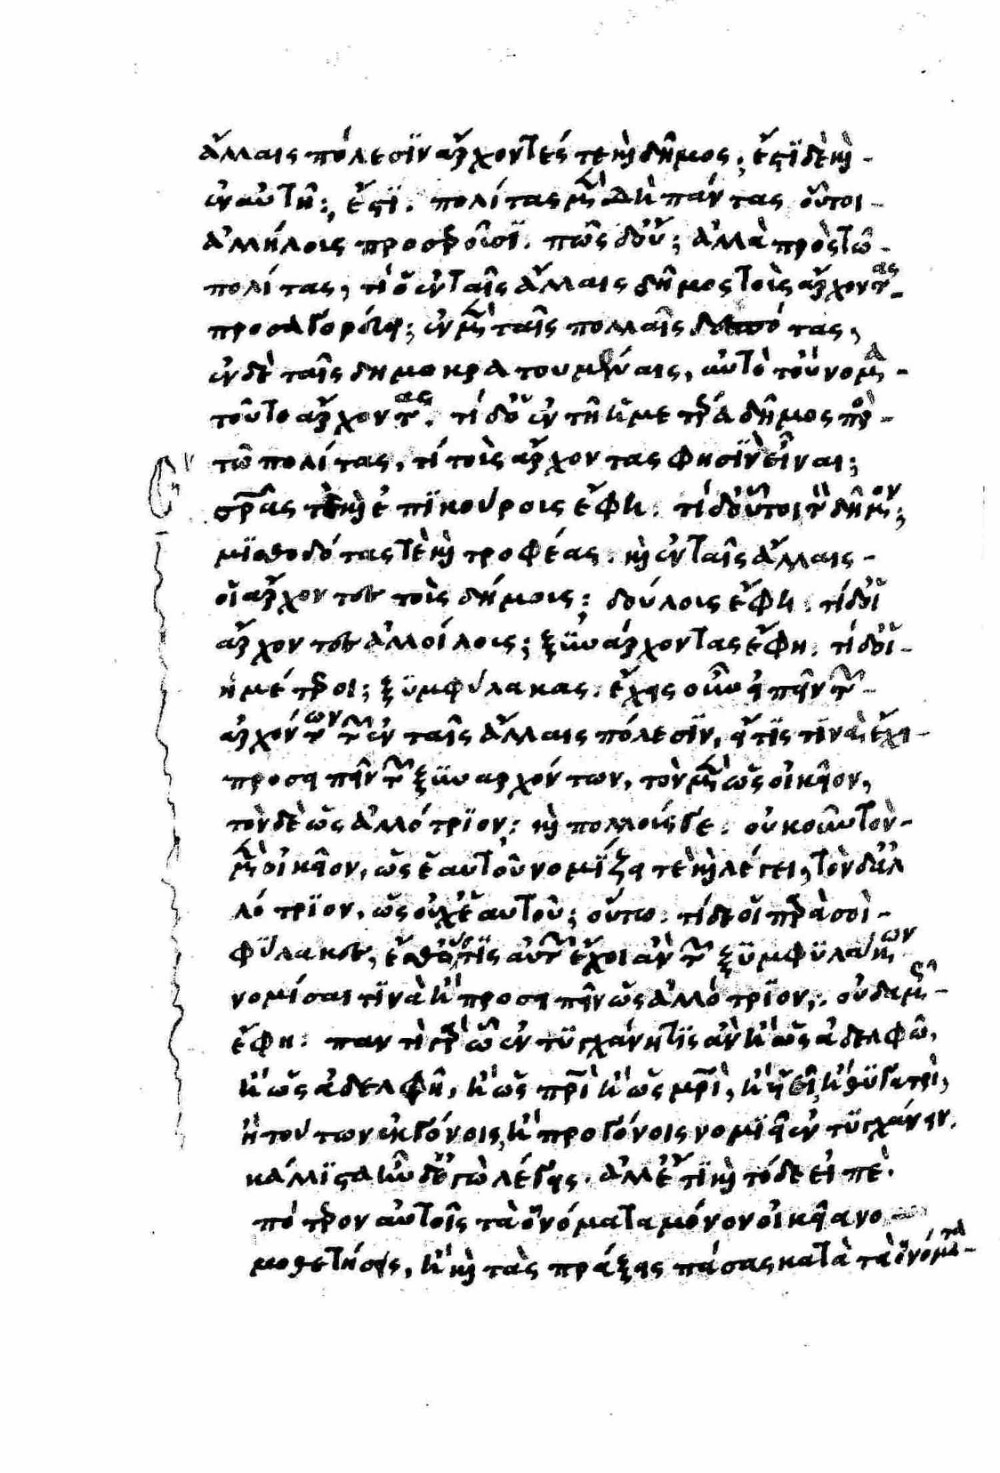 ἄλλαις πόλεσϊν ἄρχοντές τε καὶ δῆμος; ἔστϊ δὲ καὶ
ἐν αὐτῆ; ἔστϊ. πολίτας μὲν δὴ πάντας οὗτοι
ἀλλήλοις προσεροῦσϊ. πῶς δ' οὔ; ἀλλὰ πρὸς τῶ
πολίτας, τί ὁ ἐν ταῖς ἄλλαις δῆμος τοὺς ἄρχοντας
προσαγορεύει; ἐν μὲν ταῖς πολλαῖς δεσπότας,
ἐν δὲ ταῖς δημοκρατουμέναις, αὐτὸ τοὔνομα
τοῦτο ἄρχοντας. τί δ' ὁ ἐν τῆ ἡμετέρα δῆμος πρὸς
τῶ πολίτας, τί τοὺς ἄρχοντας φησϊν εἶναι;
σωτῆρας τε καὶ ἐπϊκούρους ἔφη. τί δ' οὗτοι τὸν δῆμον;
μϊσθοδότας τε καὶ τροφέας. οἱ δ' ἐν ταῖς ἄλλαις
οἱ ἄρχοντες τοὺς δήμους; δούλους ἔφη. τί δ' οἱ
ἄρχοντες ἀλλήλους; ξϋνάρχοντας ἔφη. τί δ' οἱ
ἡμέτεροι; ξϋμφύλακας. ἔχεις οὖν εἰπεῖν τῶν
ἀρχόντων τῶν ἐν ταῖς ἄλλαις πόλεσϊν, εἴ τϊς τϊνὰ ἔχει
προσειπεῖν τῶν ξϋναρχόντων, τὸν μὲν ὡς οἰκεῖον,
τὸν δὲ ὡς ἀλλότρϊον; καὶ πολλούς γε. οὐκοῦν τὸν
μὲν οἰκεῖον, ὡς ἑαυτοῦ νομϊζει τε καὶ λέγει, τὸν δ' ἀλ
λότρϊον, ὡς οὐχ ἑαυτοῦ; οὕτω. τί δὲ οἱ παρὰ σοὶ
φϋλακες, ἔσθ' ὅστϊς αὐτῶν ἔχοι ἂν τῶν ξϋμφϋλάκων
νομίσαι τϊνὰ ἢ προσειπεῖν ὡς ἀλλότρϊον; οὐδαμῶς
ἔφη. παντὶ γὰρ ὧ ἂν ἐντϋγχάνη τϊς ἂν ἢ ὡς ἀδελφῶ,
ἢ ὡς ἀδελφῆ, ἢ ὡς πατρὶ ἢ ὡς μητρὶ, ἢ υἱεῖ, ἢ θϋγατρὶ,
ἢ τούτων ἐκγόνοις, ἢ προγόνοις νομϊεῖ ἐντϋγχάνειν.
κάλλϊστα ἦν δ' ἐγὼ λέγεις. ἀλλ' ἔτϊ καὶ τόδε εἰπὲ.
πότερον αὐτοῖς τὰ ὀνόματα μόνον οἰκεῖα νο
μοθετήσεις, ἢ καὶ τὰς πράξεις πάσας κατὰ τὰ ὀνόματα